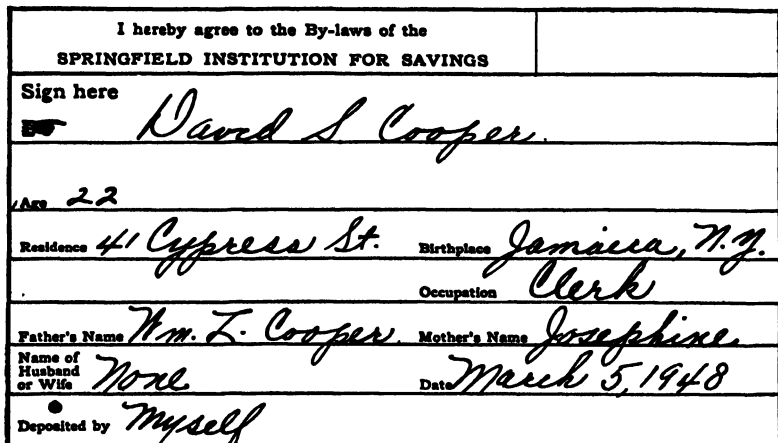 I hereby agree to the By-laws of the
SPRINGFIELD INSTITUTION FOR SAVINGS
Sign here
David S. Cooper.
Age 22
Residence 41 Cypress St. Birthplace Jamaica, N.Y.
Occupation Clerk
Father's Name Wm. L. Cooper. Mother's Name Josephine
Name of
Husband
or Wife None Date March 5, 1948
Deposited by Myself